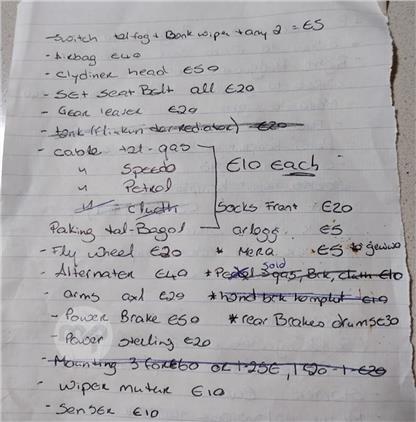 - Switch tal fog + Bank wiper + any 2 = €5
- Airbag €40
- Clydiner head €50
- SEt Seat Belt all €20
- Gear leaver €20
- tank (flixkun tar-rediator) €20
- cable tal-gas
" Speedo €10 each
" Petrol
" clucth Socks Front €20
Paking tal-Bagol arlogg €5
- Fly wheel €20 * Mera €5 to gewwa
- Alternater €40 * Pedal 3 gas, Brk, cluth €10 Sold
- arms axl €20 * hand brk komplut €10
- Power Brake €50 * rear Brakes drums €30
- Power sterling €20
- Mounting 3 for €60 or 1-25€, 1 50 - 1 - €20
- wiper muter €10
- Senser €10